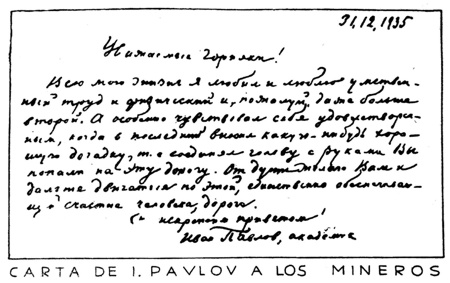 31,12,1935
Уважаемые Горняки!
Всю мою жизнь я любил и люблю умствен-
ный труд и физический и, пожалуй, даже больше
второй. А особенно чувствовал себя удовлетворен-
ным, когда в последний вносил какую-нибудь хоро-
шую догадку, т.е соединял голову с руками Вы
попали на эту дорогу. От души желаю Вам и
дальше двигаться по этой, единственно обеспечиваю-
щей счастие человека, дороге.
С искренним приветом!
Иван Павлов, академик
CARTA DE I. PAVLOV A LOS MINEROS